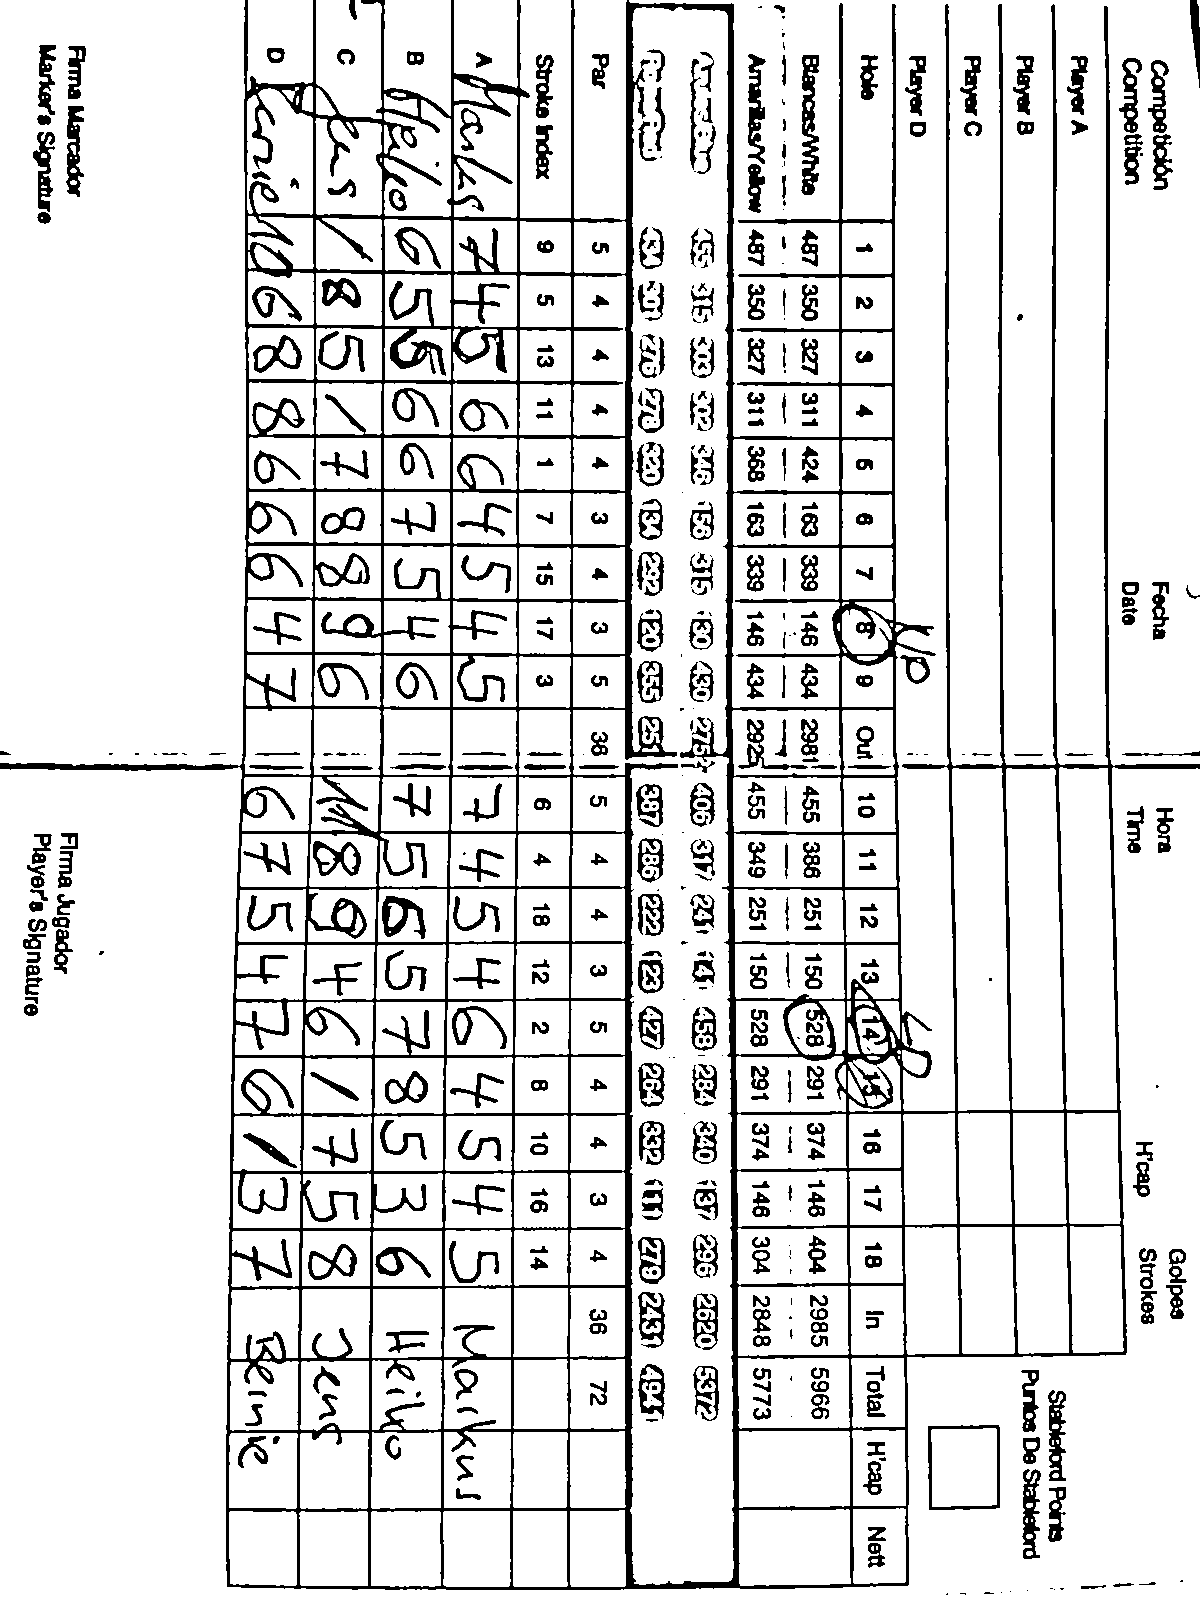 Competición Fecha Hora Golpes
Competition Date Time H'cap Strokes
Player A
Player B
Player C
Player D
Stableford Points
Puntos De Stableford
Hole 1 2 3 4 5 6 7 8 9 Out 10 11 12 13 14 15 16 17 18 In Total H'cap Nett
Blancas/White 487 350 327 311 424 163 339 146 434 2981 455 386 251 150 528 291 374 146 404 2985 5966
Amarillas/Yellow 487 350 327 311 368 163 339 146 434 2925 455 349 251 150 528 291 374 146 304 2848 5773
455 315 303 302 346 156 315 130 430 2752 406 317 241 141 458 284 340 137 296 2620 5372
434 301 276 278 320 134 292 120 355 251 387 286 222 123 427 264 332 111 279 2431 4941
Par 5 4 4 4 4 3 4 3 5 36 5 4 4 3 5 4 4 3 4 36 72
Stroke Index 9 5 13 11 1 7 15 17 3 6 4 18 12 2 8 10 16 14
A Markus 7 4 5 6 6 4 5 4 5 7 4 5 4 6 4 5 4 5 Markus
B Heiko 6 5 5 6 6 7 5 4 6 7 5 6 5 7 8 5 3 6 Heiko
C Jens / 8 5 / 7 8 8 9 6 11 8 9 4 6 / 7 5 8 Jens
D Bernie 10 6 8 8 6 6 6 4 7 6 7 5 4 7 6 / 3 7 Bernie
Firma Marcador Firma Jugador
Marker's Signature Player's Signature